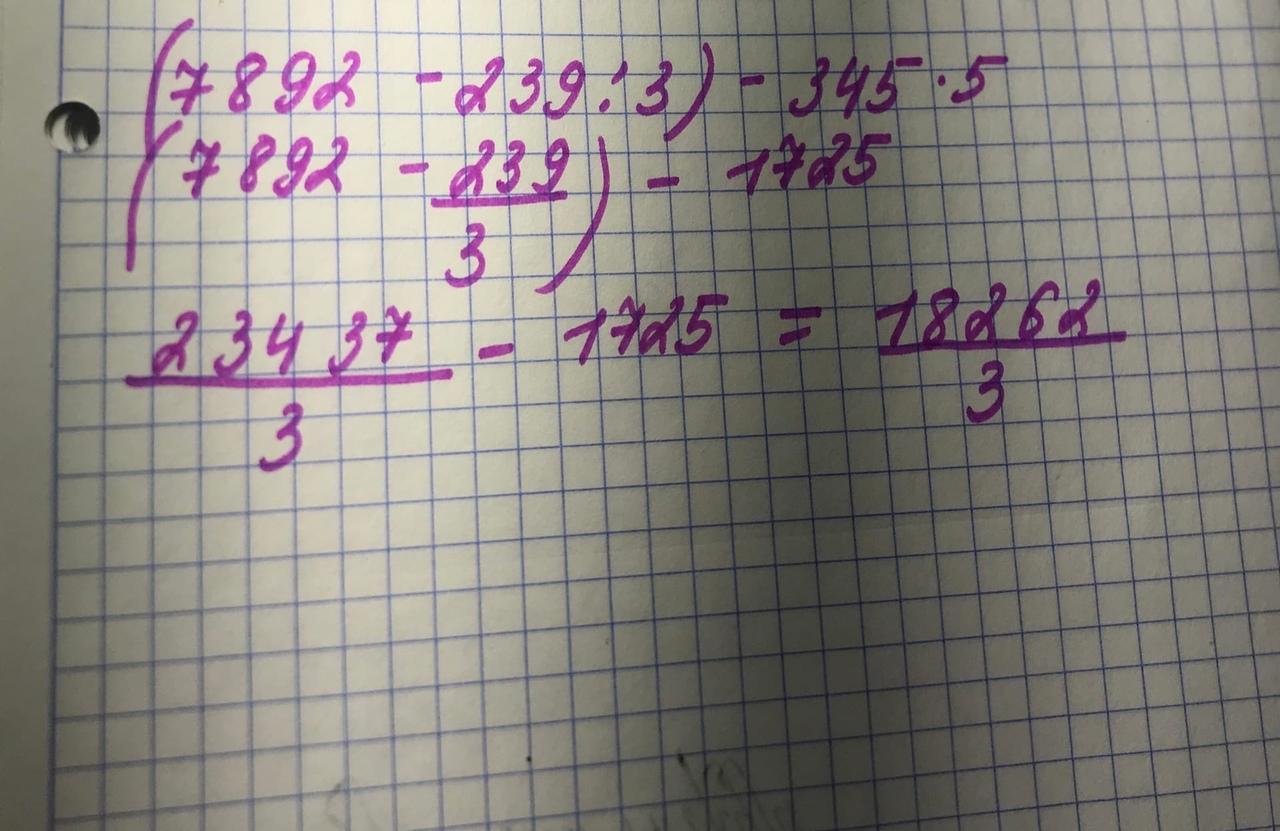 (7892 - 239 : 3) - 345 · 5
(7892 - 239/3) - 1725
23437/3 - 1725 = 18262/3